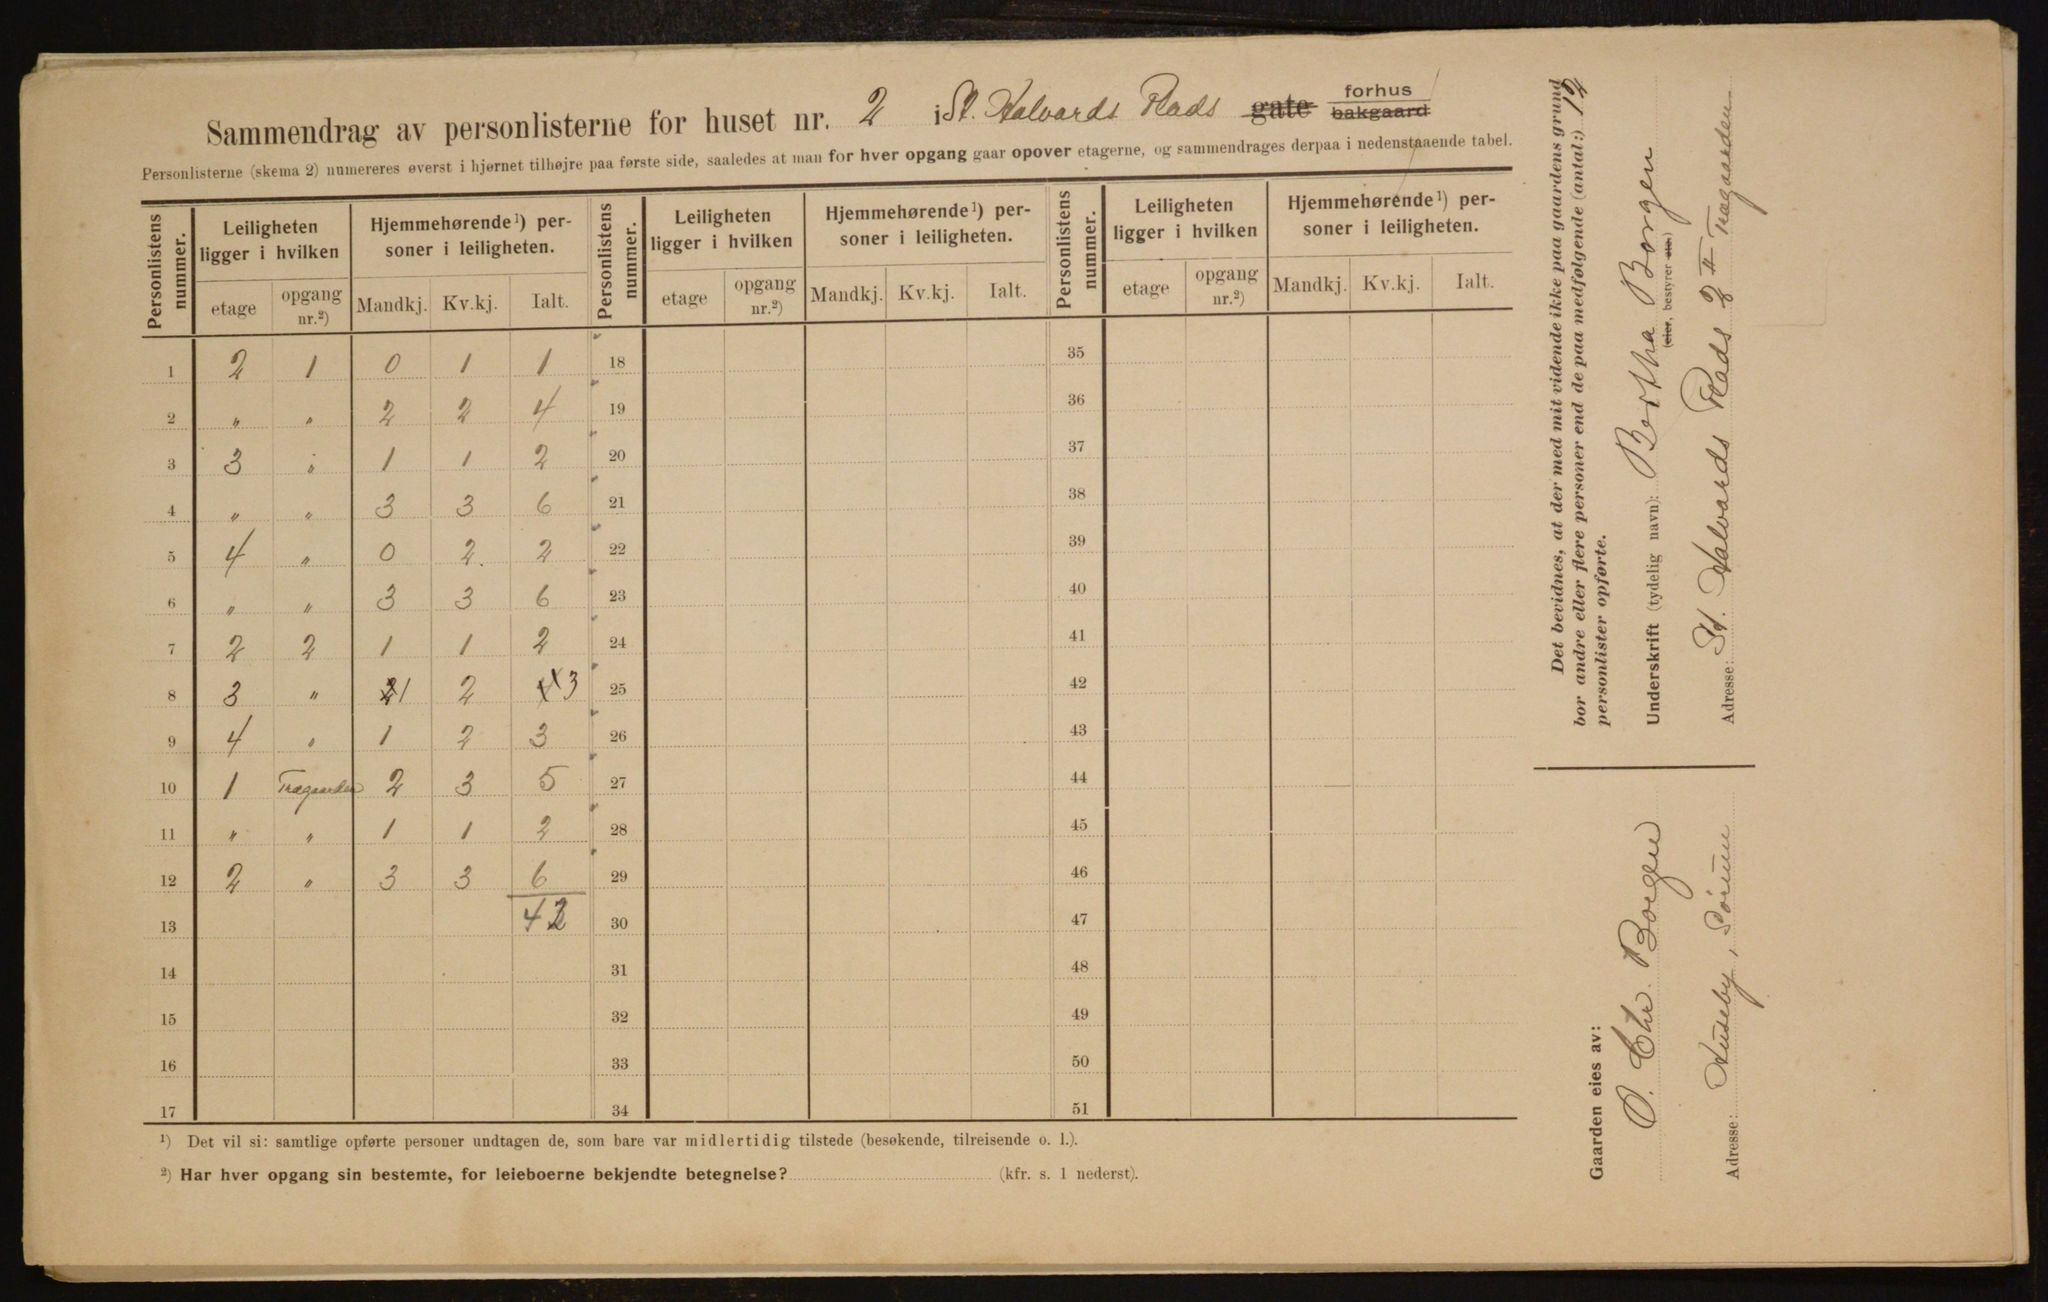 Sammendrag av personlisterne for huset nr. 2 i St. Halvards Plads gate forhus bakgaard
Personlisterne (skema 2) numereres øverst i hjørnet tilhøjre paa første side, saaledes at man for hver opgang gaar opover etagerne, og sammendrages derpaa i nedenstaaende tabel.
Personlistens nummer. Leiligheten ligger i hvilken Hjemmehørende¹) personer i leiligheten. Personlistens nummer. Leiligheten ligger i hvilken Hjemmehørende¹) personer i leiligheten. Personlistens nummer. Leiligheten ligger i hvilken Hjemmehørende¹) personer i leiligheten.
etage opgang nr.²) Mandkj. Kv.kj. Ialt. etage opgang nr.²) Mandkj. Kv.kj. Ialt. etage opgang nr.²) Mandkj. Kv.kj. Ialt.
1 2 1 0 1 1 18 35
2 " " 2 2 4 19 36
3 3 " 1 1 2 20 37
4 " " 3 3 6 21 38
5 4 " 0 2 2 22 39
6 " " 3 3 6 23 40
7 2 2 1 1 2 24 41
8 3 " 1 2 3 25 42
9 4 " 1 2 3 26 43
10 1 Trægaarden 2 3 5 27 44
11 " " 1 1 2 28 45
12 2 " 3 3 6 29 46
13 42 30 47
14 31 48
15 32 49
16 33 50
17 34 51
¹) Det vil si: samtlige opførte personer undtagen de, som bare var midlertidig tilstede (besøkende, tilreisende o. l.).
²) Har hver opgang sin bestemte, for leieboerne bekjendte betegnelse? (kfr. s. 1 nederst).
Det bevidnes, at der med mit vidende ikke paa gaardens grund
bor andre eller flere personer end de paa medfølgende (antal:) 12
personlister opførte.
Underskrift (tydelig navn): Bertha Borgen
(eier, bestyrer etc.)
Adresse: St. Halvards Plads 2 II Trægaarden
Gaarden eies av:
O. Chr. Borgen
Adresse: Huseby, Sørum